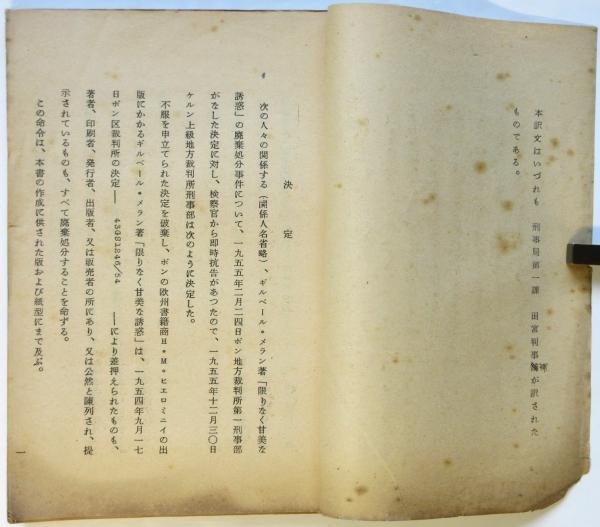 本訳文はいづれも 刑事局第一課 田宮判事補が訳された
ものである。
決定
次の人々の関係する（関係人名省略）、ギルベール・メラン著「限りなく甘美な
誘惑」の廃棄処分事件について、一九五五年二月二四日ボン地方裁判所第一刑事部
がなした決定に対し、検察官から即時抗告があつたので、一九五五年十二月三〇日
ケルン上級地方裁判所刑事部は次のように決定した。
不服を申立てられた決定を破棄し、ボンの欧州書籍商H・M・ヒエロミニイの出
版にかかるギルベール・メラン著「限りなく甘美な誘惑」は、一九五四年九月一七
日ボン区裁判所の決定―― 43Gs1246/54 ――により差押えられたものも、
著者、印刷者、発行者、出版者、又は販売者の所にあり、又は公然と陳列され、提
示されているものも、すべて廃棄処分することを命ずる。
この命令は、本書の作成に供された版および紙型にまで及ぶ。
一